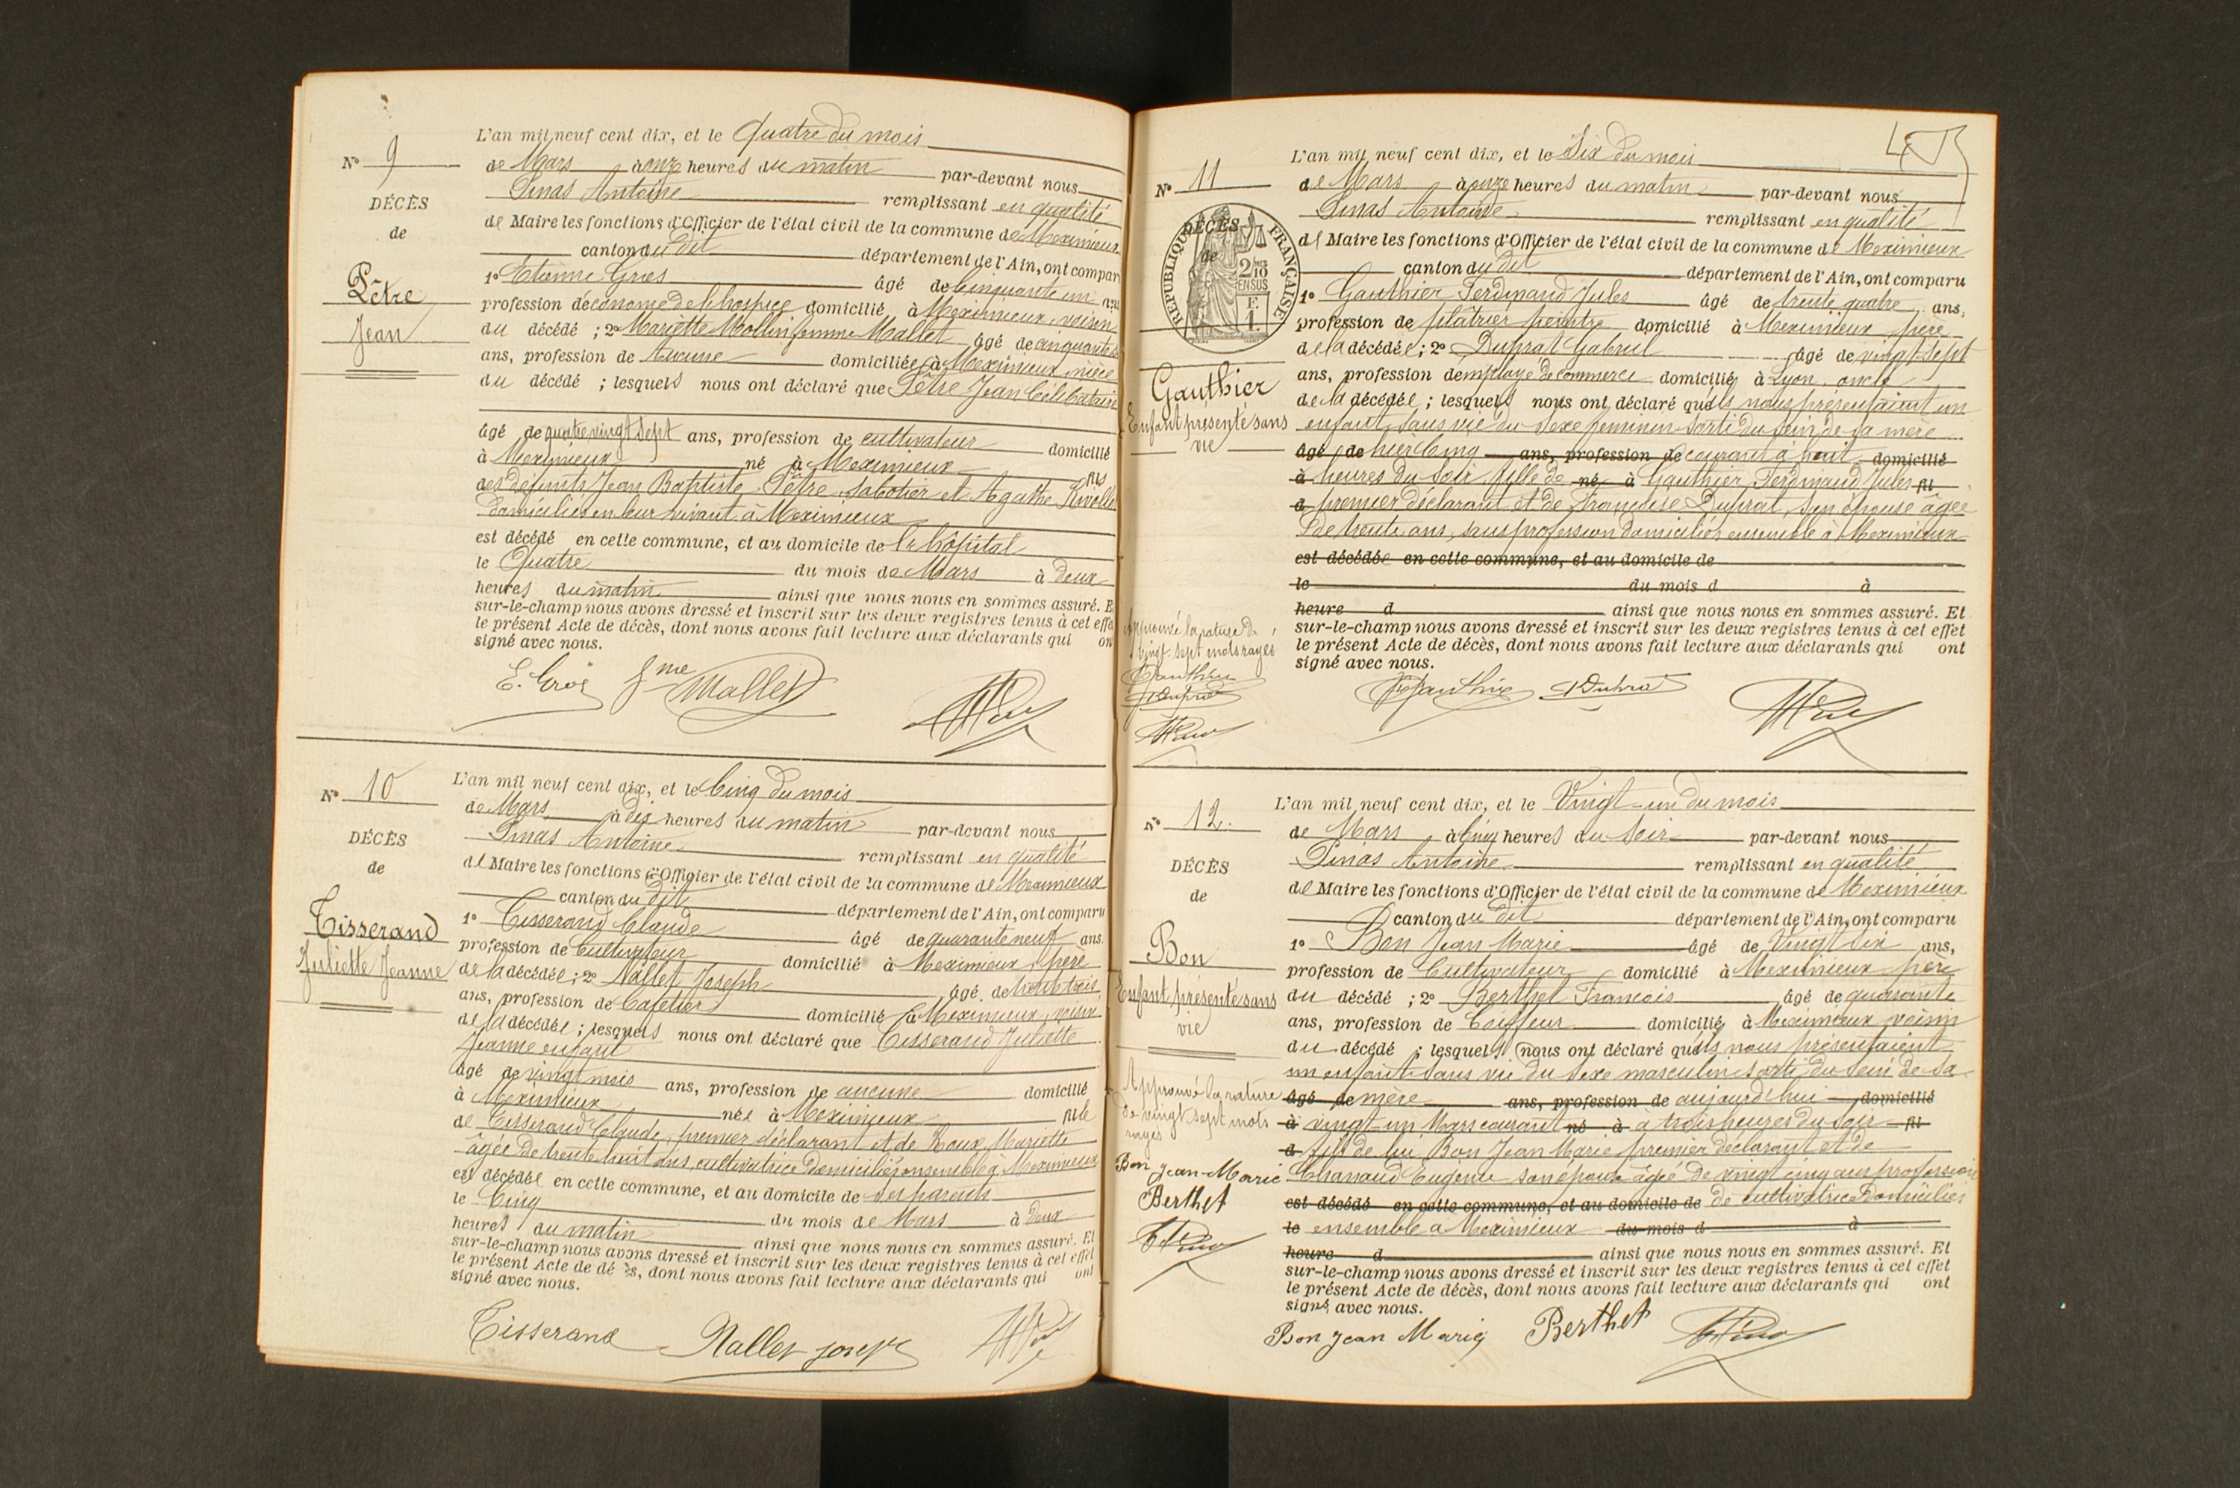 N° 9
DÉCÈS
de
Pêtre
Jean
L'an mil neuf cent dix, et le Quatre du mois
de Mars à onze heures du matin par-devant nous
Pinas Antoine remplissant en qualité
de Maire les fonctions d'Officier de l'état civil de la commune de Meximieux
canton du dit département de l'Ain, ont compar
1° Etienne Gros âgé de Cinquante un ans
profession d'économe de l'hospice domicilié à Meximieux voisin
du décédé ; 2° Mariette Mollin femme Mallet âgé de cinquante
ans, profession de Aucune domiciliée à Meximieux nièce
du décédé ; lesquels nous ont déclaré que Pêtre Jean Célibataire
âgé de quatre vingt sept ans, profession de cultivateur domicilié
à Meximieux né à Meximieux fils
des défunts Jean Baptiste Pêtre sabotier et Agathe
domiciliés en leur vivant à Meximieux
est décédé en cette commune, et au domicile de l'hôpital
le Quatre du mois de Mars à deux
heures du matin ainsi que nous nous en sommes assuré. E
sur-le-champ nous avons dressé et inscrit sur les deux registres tenus à cet effe
le présent Acte de décès, dont nous avons fait lecture aux déclarants qui on
signé avec nous.
E. Gros fme Mallet
N° 10
DÉCÈS
de
Tisserand
Juliette Jeanne
L'an mil neuf cent dix, et le Cinq du mois
de Mars à dix heures du matin par-devant nous
Pinas Antoine remplissant en qualité
de Maire les fonctions d'Officier de l'état civil de la commune de Meximieux
canton du dit département de l'Ain, ont comparu
1° Tisserand Claude âgé de quarante neuf ans
profession de Cultivateur domicilié à Meximieux, père
de la décédée ; 2° Nallet Joseph âgé de trente trois
ans, profession de Cafetier domicilié à Meximieux, voisin
de la décédée ; lesquels nous ont déclaré que Tisserand Juliette
Jeanne enfant
âgé de vingt mois ans, profession de aucune domicilié
à Meximieux née à Meximieux fille
de Tisserand Claude, premier déclarant et de Mariette
âgée de trente huit ans cultivatrice domiciliés ensemble à Meximieux
est décédée en cette commune, et au domicile de ses parents
le Cinq du mois de Mars à deux
heures du matin ainsi que nous nous en sommes assuré. Et
sur-le-champ nous avons dressé et inscrit sur les deux registres tenus à cet effet
le présent Acte de décès, dont nous avons fait lecture aux déclarants qui ont
signé avec nous.
Tisserand Nallet Joseph
N° 11
DÉCÈS
de
RÉPUBLIQUE FRANÇAISE
2/10 EN SUS
F.
1.
Gauthier
Enfant présenté sans
vie
Approuvé la rature de
vingt-sept mots rayés
Gauthier
Duprat
L'an mil neuf cent dix, et le Six du mois
de Mars à onze heures du matin par-devant nous
Pinas Antoine remplissant en qualité
de Maire les fonctions d'Officier de l'état civil de la commune de Meximieux
canton du dit département de l'Ain, ont comparu
1° Gauthier Ferdinand Jules âgé de trente quatre ans,
profession de plâtrier peintre domicilié à Meximieux père
de la décédée ; 2° Duprat Gabriel âgé de vingt-sept
ans, profession d'employé de commerce domicilié à Lyon, oncle
de la décédée ; lesquels nous ont déclaré qu'ils nous présentaient un
enfant sans vie du sexe féminin sorti du sein de sa mère
âgé de hier Cinq ans, profession de courant à huit domicilié
à heures du soir fille de né à Gauthier Ferdinand Jules fil
d premier déclarant et de Françoise Duprat, son épouse âgée
de trente ans, sans profession domiciliés ensemble à Meximieux
est décédée en cette commune, et au domicile de
le du mois d à
heure d ainsi que nous nous en sommes assuré. Et
sur-le-champ nous avons dressé et inscrit sur les deux registres tenus à cet effet
le présent Acte de décès, dont nous avons fait lecture aux déclarants qui ont
signé avec nous.
Gauthier Duprat
N° 12.
DÉCÈS
de
Bon
Enfant présenté sans
vie
Approuvé la rature
de vingt sept mots
rayés
Bon Jean-Marie
Berthet
L'an mil neuf cent dix, et le Vingt-un du mois
de Mars à Cinq heures du Soir par-devant nous
Pinas Antoine remplissant en qualité
de Maire les fonctions d'Officier de l'état civil de la commune de Meximieux
canton du dit département de l'Ain, ont comparu
1° Bon Jean Marie âgé de Vingt six ans,
profession de Cultivateur domicilié à Meximieux père
du décédé ; 2° Berthet François âgé de quarante
ans, profession de Coiffeur domicilié à Meximieux voisin
du décédé ; lesquels nous ont déclaré qu'ils nous présentaient
un enfant sans vie du sexe masculin sorti du sein de sa
âgé de mère ans, profession de aujourd'hui domicilié
à vingt-un Mars courant né à à trois heures du soir fil
d fils de lui Bon Jean Marie premier déclarant et de
Eugénie son épouse âgée de vingt cinq ans profession
est décédé en cette commune, et au domicile de de cultivatrice domiciliés
le ensemble à Meximieux du mois d à
heure d ainsi que nous nous en sommes assuré. Et
sur-le-champ nous avons dressé et inscrit sur les deux registres tenus à cet effet
le présent Acte de décès, dont nous avons fait lecture aux déclarants qui ont
signé avec nous.
Bon Jean Marie Berthet